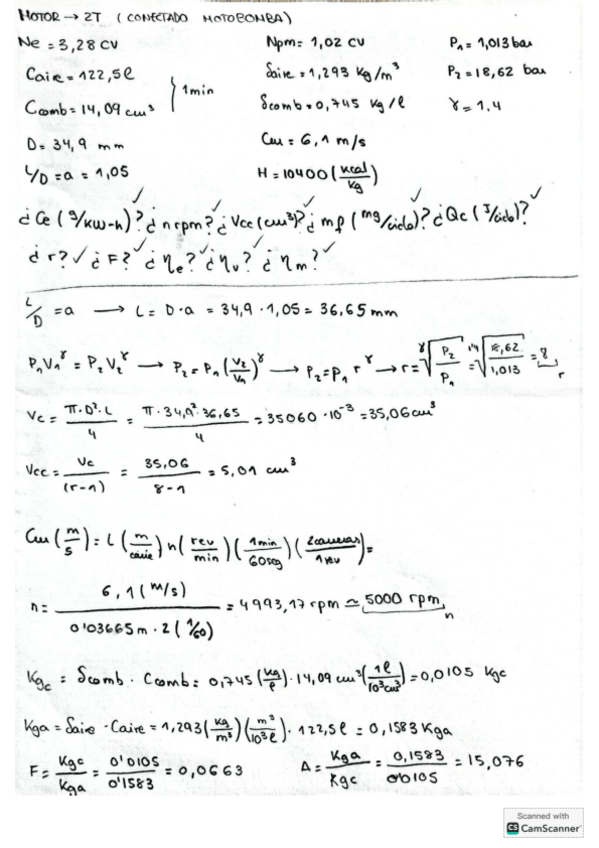 MOTOR → 2T (CONECTADO MOTOBOMBA)
Ne = 3,28 CV Npm = 1,02 CV P₁ = 1,013 bar
Caire = 122,5 l δaire = 1,293 Kg/m³ P₂ = 18,62 bar
1 min
Ccomb = 14,09 cm³ δcomb = 0,745 Kg/l γ = 1.4
D = 34,9 mm Cm = 6,1 m/s
L/D = a = 1,05 H = 10400 (Kcal/Kg)
¿Ce (g/kw-h)? ✓ ¿n rpm? ✓ ¿Vcc (cm³)? ✓ ¿mf (mg/ciclo)? ✓ ¿Qc (J/ciclo)? ✓
¿r? ✓ ¿F? ✓ ¿ηe? ✓ ¿ηv? ✓ ¿ηm? ✓
L/D = a → L = D·a = 34,9 · 1,05 = 36,65 mm
P₁V₁^γ = P₂V₂^γ → P₂ = P₁ (V₂/V₁)^γ → P₂ = P₁ r^γ → r = γ√(P₂/P₁) = 1'4√(18,62/1,013) = 8 r
Vc = π·D²·L/4 = π·34,9²·36,65/4 = 35060·10⁻³ = 35,06 cm³
Vcc = Vc/(r-1) = 35,06/8-1 = 5,01 cm³
Cm (m/s) = L (m/carre) n (rev/min) (1min/60seg) (2carreras/1rev) =
n = 6,1 (m/s) / 0'03665 m · 2 (1/60) = 4993,17 rpm ≃ 5000 rpm n
Kgc = δcomb · Ccomb = 0,745 (Kg/l) · 14,09 cm³ (1l/10³cm³) = 0,0105 Kgc
Kga = δaire · Caire = 1,293 (Kg/m³) (m³/10³l) · 122,5 l = 0,1583 Kga
F = Kgc/Kga = 0'0105/0'1583 = 0,0663 A = Kga/Kgc = 0,1583/0'0105 = 15,076
Scanned with
CS CamScanner